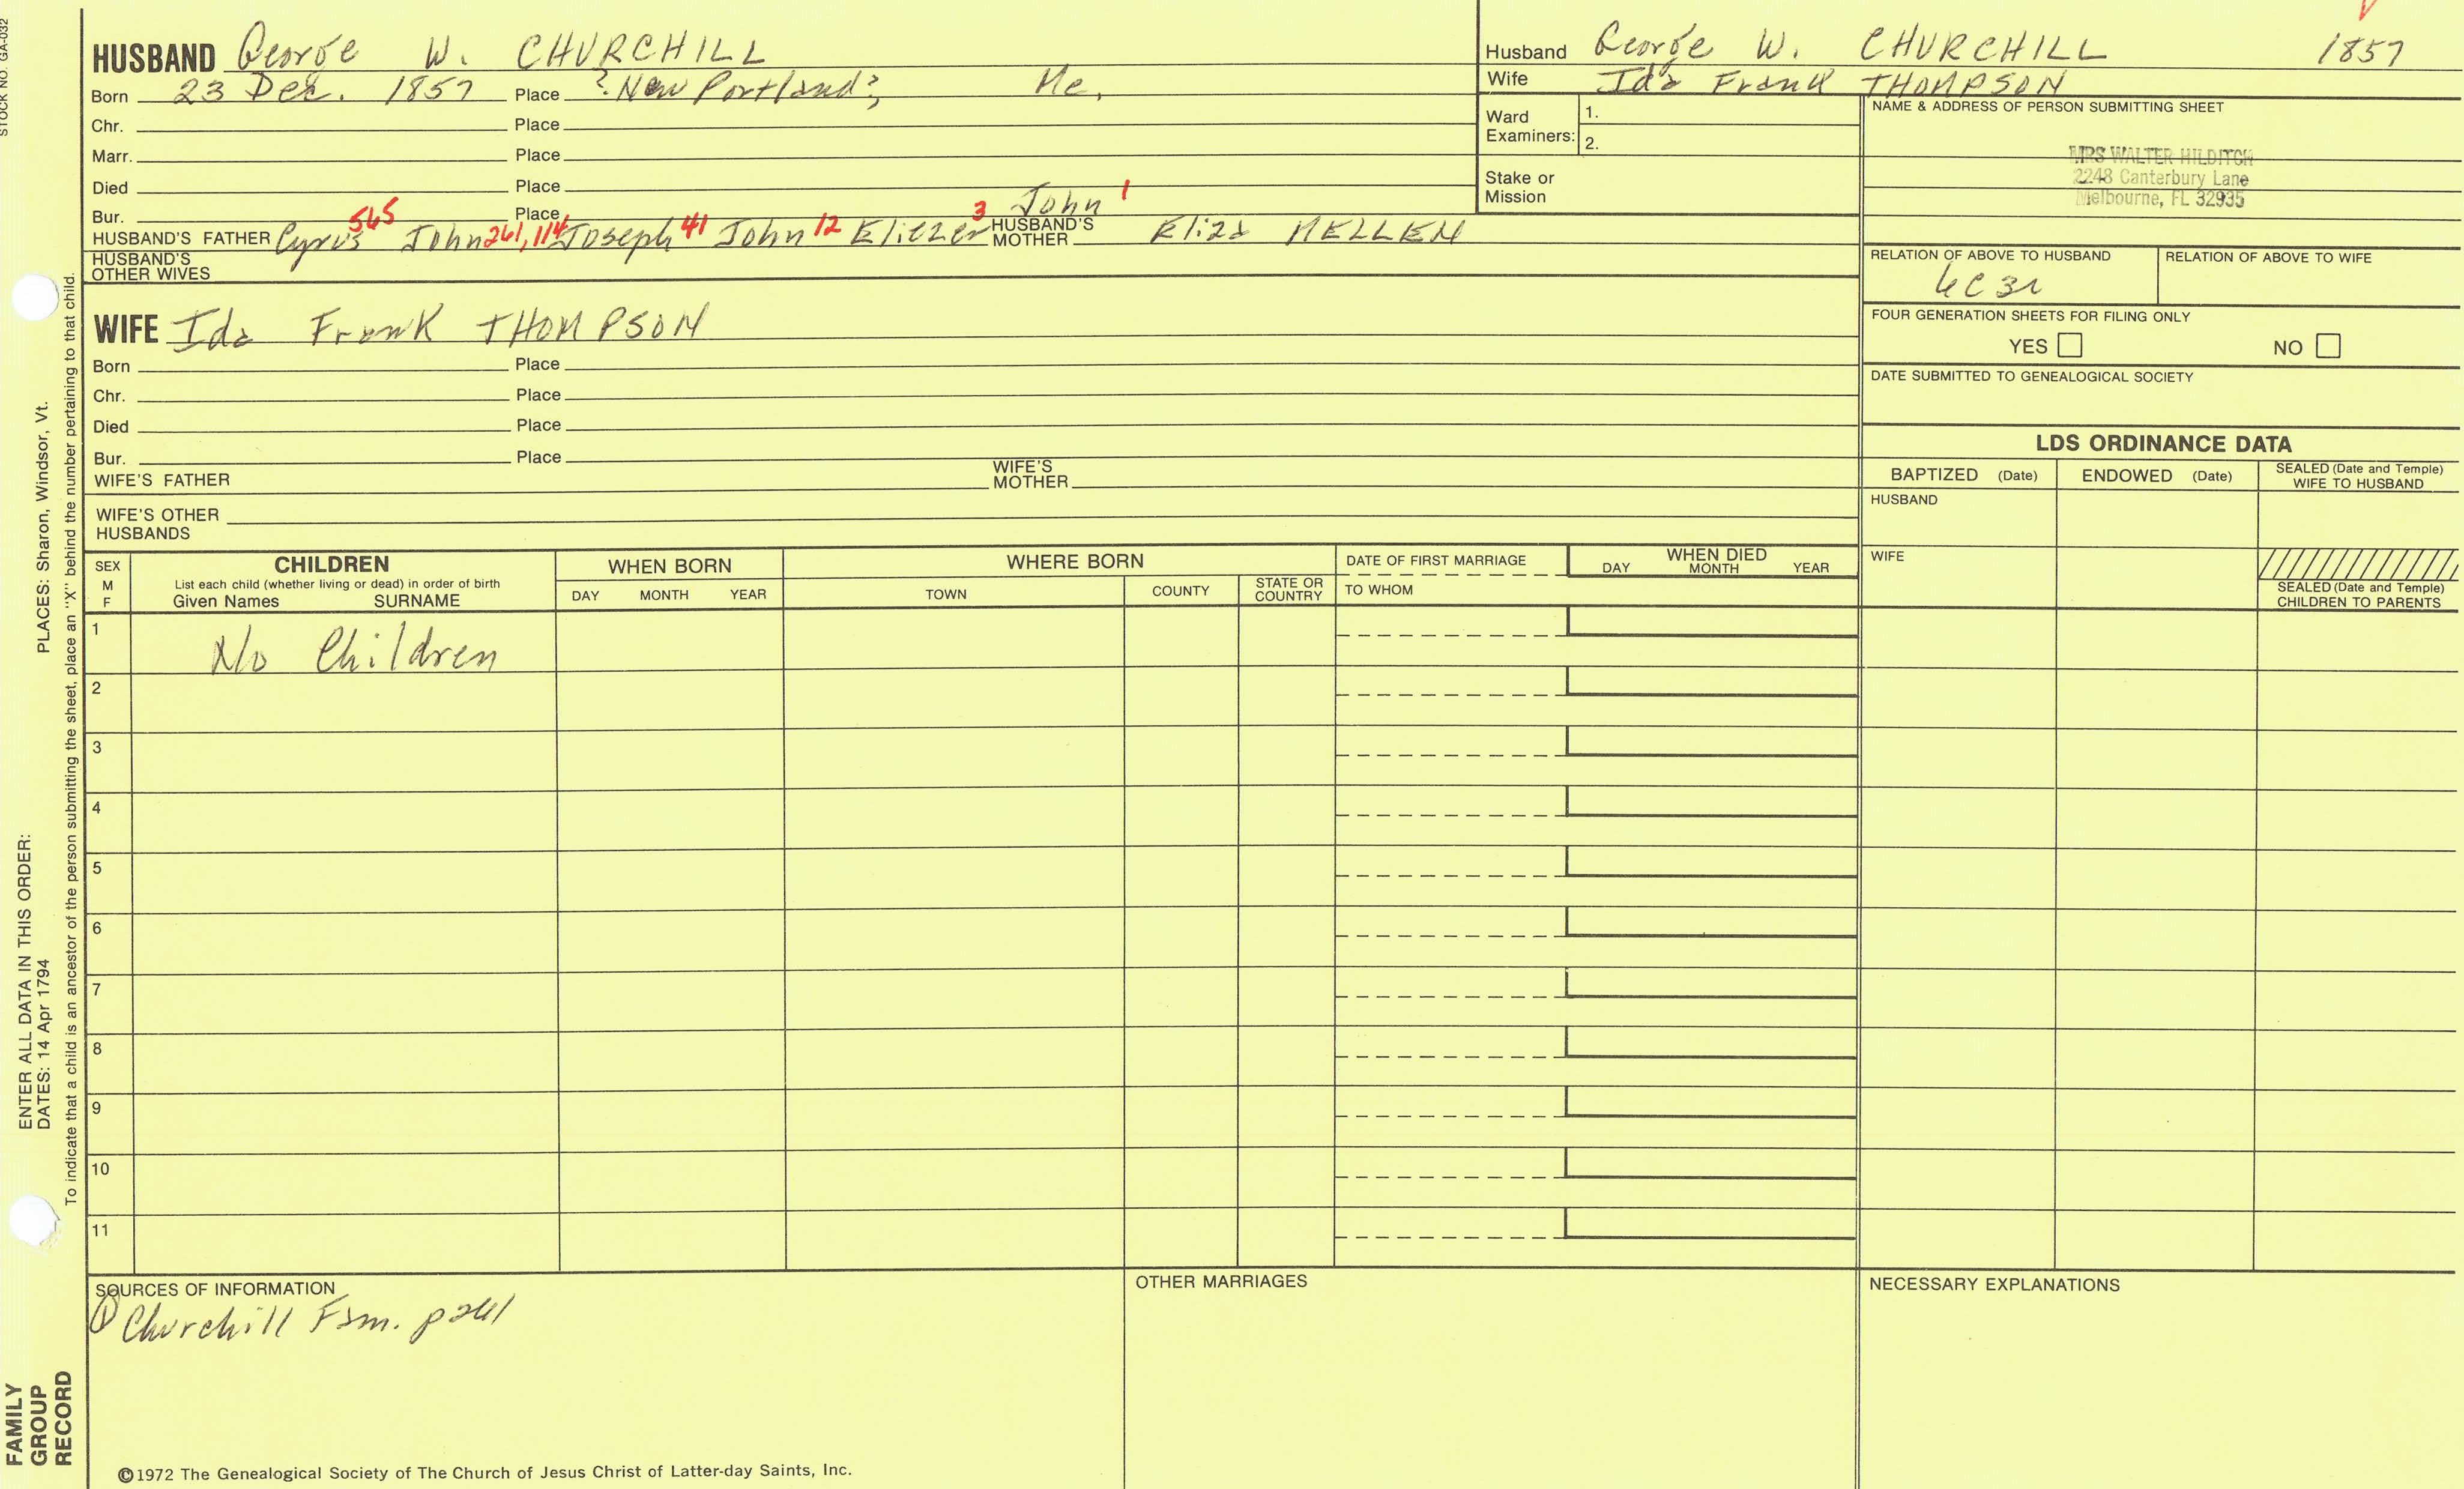 STOCK NO. GA-032
HUSBAND George W. CHURCHILL
Born 23 Dec. 1857 Place ?New Portland?, Me.
Chr. Place
Marr. Place
Died Place
Bur. Place John 1
HUSBAND'S FATHER Cyrus 565 John 261, 114 Joseph 41 John 12 Eliezer 3 HUSBAND'S MOTHER Eliza MELLEN
HUSBAND'S OTHER WIVES
WIFE Ida Frank THOMPSON
Born Place
Chr. Place
Died Place
Bur. Place
WIFE'S FATHER WIFE'S MOTHER
WIFE'S OTHER HUSBANDS
Husband George W. CHURCHILL 1857
Wife Ida Frank THOMPSON
Ward Examiners: 1.
2.
Stake or Mission
NAME & ADDRESS OF PERSON SUBMITTING SHEET
MRS WALTER HILDITCH
2248 Canterbury Lane
Melbourne, FL 32935
RELATION OF ABOVE TO HUSBAND RELATION OF ABOVE TO WIFE
6C3r
FOUR GENERATION SHEETS FOR FILING ONLY
YES NO
DATE SUBMITTED TO GENEALOGICAL SOCIETY
LDS ORDINANCE DATA
BAPTIZED (Date) ENDOWED (Date) SEALED (Date and Temple) WIFE TO HUSBAND
HUSBAND
WIFE
SEALED (Date and Temple) CHILDREN TO PARENTS
SEX M F
CHILDREN
List each child (whether living or dead) in order of birth
Given Names SURNAME
WHEN BORN
DAY MONTH YEAR
WHERE BORN
TOWN COUNTY STATE OR COUNTRY
DATE OF FIRST MARRIAGE
TO WHOM
WHEN DIED
DAY MONTH YEAR
1 No Children
2
3
4
5
6
7
8
9
10
11
SOURCES OF INFORMATION
① Churchill Fam. p241
OTHER MARRIAGES
NECESSARY EXPLANATIONS
©1972 The Genealogical Society of The Church of Jesus Christ of Latter-day Saints, Inc.
ENTER ALL DATA IN THIS ORDER:
DATES: 14 Apr 1794 PLACES: Sharon, Windsor, Vt.
To indicate that a child is an ancestor of the person submitting the sheet, place an "X" behind the number pertaining to that child.
FAMILY GROUP RECORD